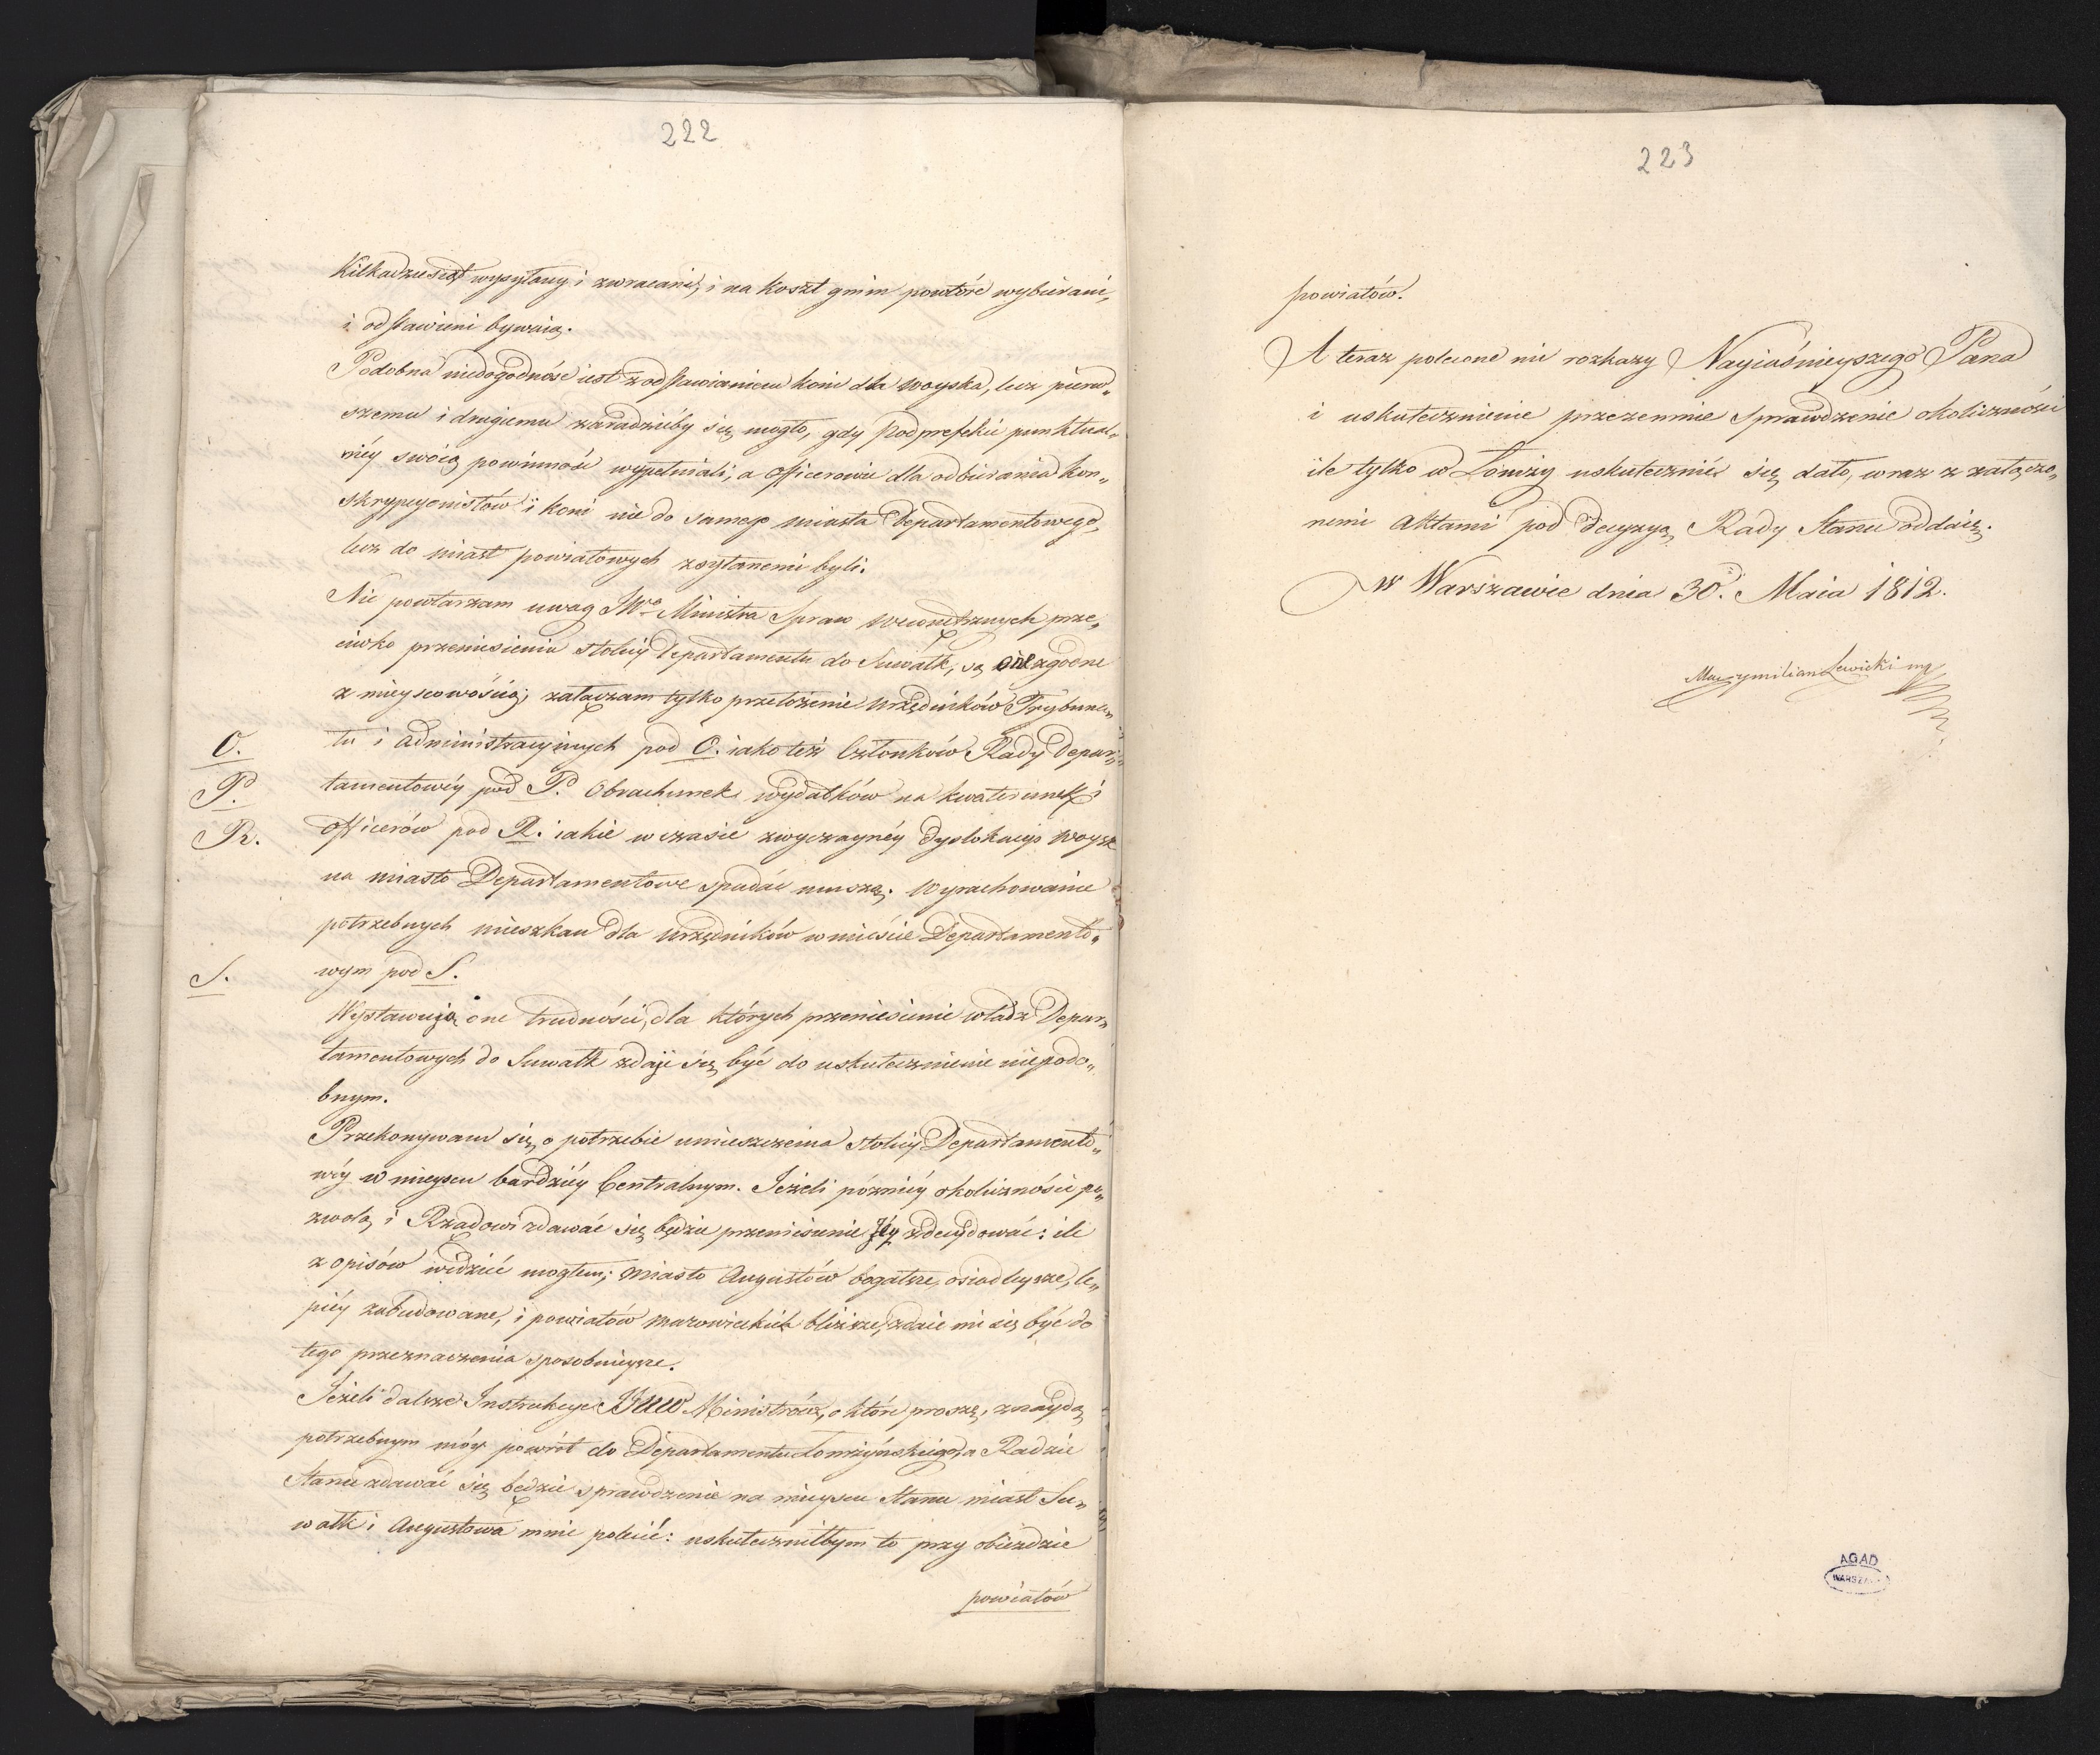 222
Kilkadziesiąt wysyłany i zwracani, i na koszt gmin powtóre wybierani,
i odstawieni bywaią.
Podobna niedogodność iest z odstawianiem koni dla woyska, lecz pierw„
szemu i drugiemu zaradzićby się mogło, gdy Podprefekci punktual„
niéy swoią powinność wypełniali, a officerowie dla odbierania kon„
skrypcyonistów i koni nie do samego miasta Departamentowego,
lecz do miast powiatowych zsyłanemi byli.
Nie powtarzam uwag JWo Ministra Spraw Wewnętrznych prze„
ciwko przeniesieniu stolicy Departamentu do Suwałk, są one zgodne
z mieyscowością; załączam tylko przełożenie urzędników Trybuna„
O.
łu i administracyinych pod O. iako też Członków Rady Depar„
P.
tamentowéy pod P. Obrachunek wydatków na kwaterunek
R.
officerów pod R. iakie w czasie zwyczaynéy dyslokacyi woysk
na miasto Departamentowe spadać muszą. Wyrachowanie
potrzebnych mieszkań dla urzędników w mieście Departamento„
S.
wym pod S.
Wystawują one trudności, dla których przeniesienie władz Depar„
tamentowych do Suwałk zdaje się być do uskutecznienie niepodo„
bnym.
Przekonywam się o potrzebie umieszczenia stolicy Departamento„
wéy w mieyscu bardziéy Centralnym. Jeżeli późniéy okoliczności po„
zwolą, i Rządowi zdawać się będzie przeniesienie Jéy zdecydować: ile
z opisów widzieć mogłem; miasto Augustów bogatsze, osiadleysze, le„
piéy zabudowane, i powiatów mazowieckich bliższe, zdaie mi się być do
tego przeznaczenia sposobnieysze.
Jeżeli dalsze Instrukcye JWW Ministrów, o które proszę, znaydą
potrzebnym móy powrót do Departamentu Łomżyńskiego, a Radzie
Stanu zdawać się będzie sprawdzenie na mieyscu stanu miast Su„
wałk i Augustowa mnie polecić: uskuteczniłbym to przy obieździe
powiatów
223
powiatów.
A teraz polecone mi rozkazy Nayiaśnieyszego Pana
i uskutecznienie przezemnie sprawdzenie okoliczności
ile tylko w Łomży uskutecznić się dało, wraz z załączo„
nemi Aktami pod decyzyą Rady Stanu oddaię.
w Warszawie dnia 30. Maia 1812.
Maxymilian Lewicki mp
AGAD
WARSZAWA